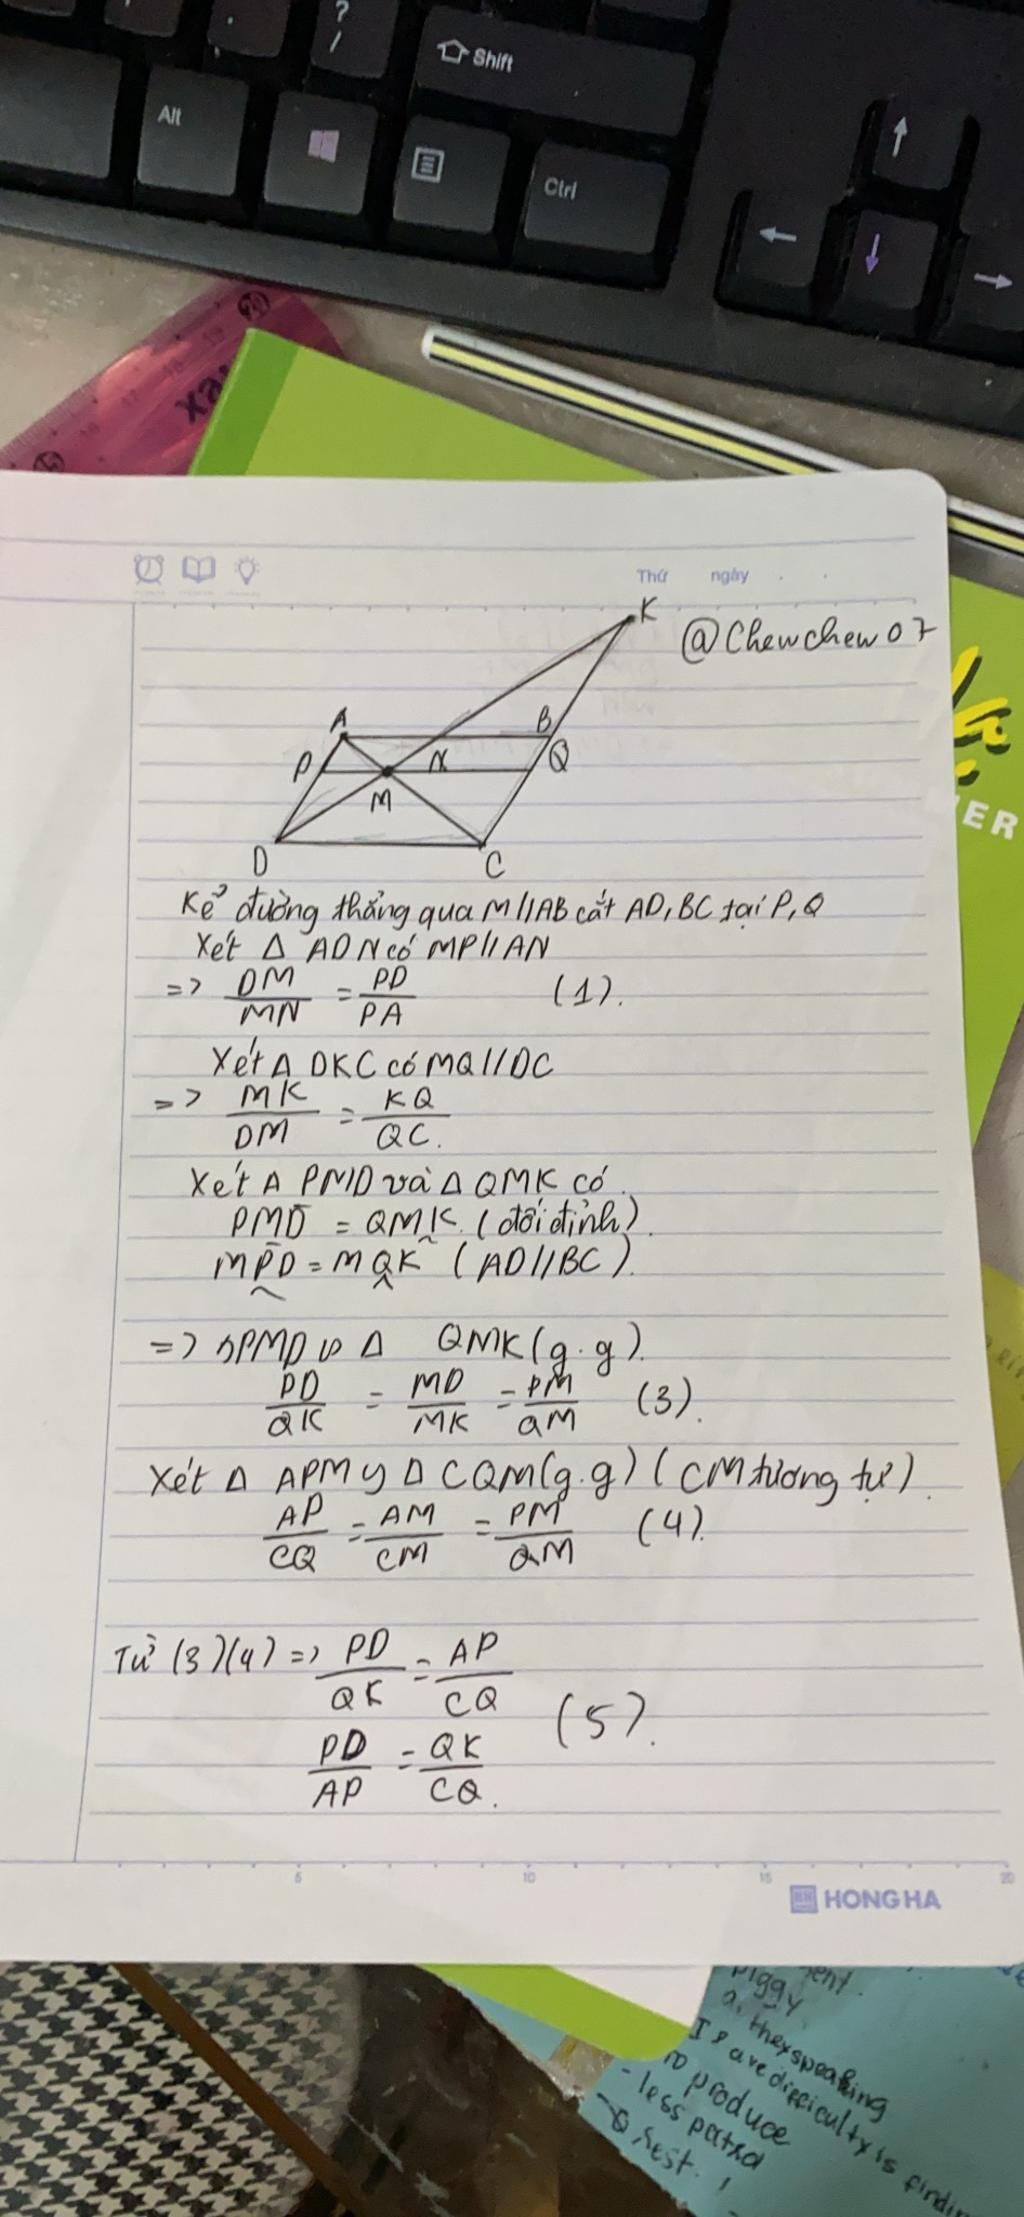 ?
/
Shift
Alt
Ctrl
Thứ ngày
@Chewchew07
K
A
B
P
N
Q
M
D
C
Kẻ đường thẳng qua M//AB cắt AD, BC tại P, Q
Xét Δ ADN có MP//AN
=> DM/MN = PD/PA (1).
Xét Δ DKC có MQ//DC
=> MK/DM = KQ/QC.
Xét Δ PMD và Δ QMK có
PMD = QMK (đối đỉnh).
MPD = MQK (AD//BC).
=> ΔPMD ∽ Δ QMK (g.g).
PD/QK = MD/MK = PM/QM (3).
Xét Δ APM ∽ Δ CQM (g.g) (CM tương tự).
AP/CQ = AM/CM = PM/QM (4).
Từ (3)(4) => PD/QK = AP/CQ
(5).
PD/AP = QK/CQ.
5 10 15 20
HONG HA
ER
piggy
a, they speaking
I & are difficulty is findin
to produce
- less